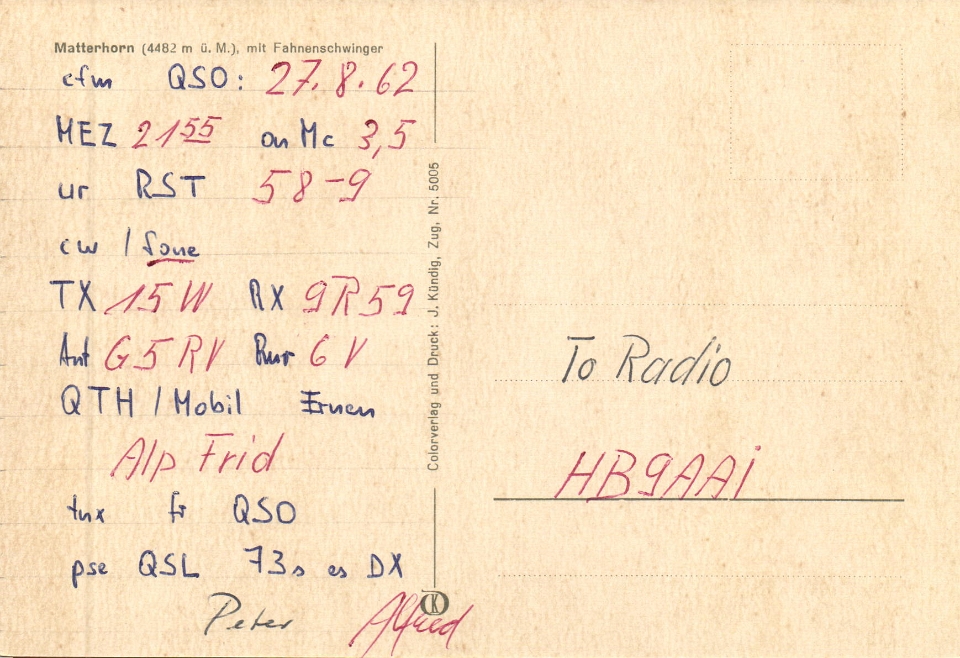 Matterhorn (4482 m ü. M.), mit Fahnenschwinger
cfm QSO: 27.8.62
MEZ 21⁵⁵ on Mc 3,5
ur RST 58-9
cw / fone
TX 15W RX 9R59
Ant G5RV Pwr 6V
QTH / Mobil Ernen
Alp Frid
tnx fr QSO
pse QSL 73s es DX
Peter Alfred
Colorverlag und Druck: J. Kündig, Zug, Nr. 5005
K
To Radio
HB9AAI